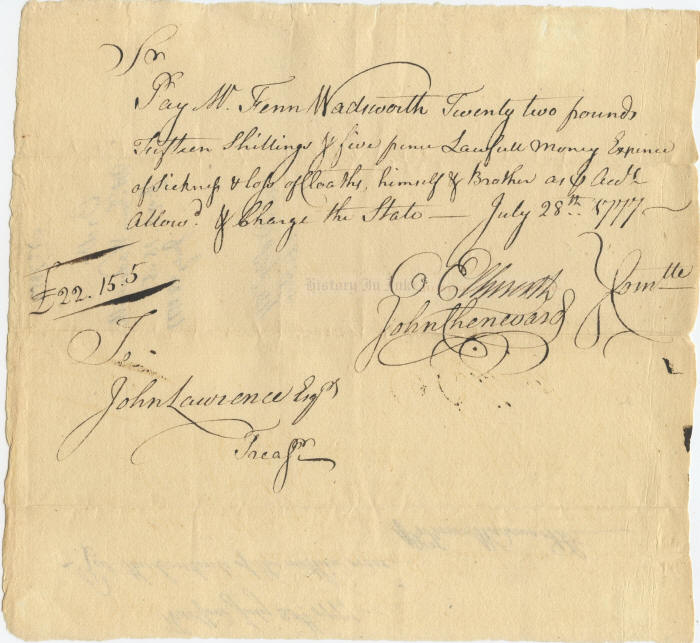 Sr
Pay Mr. Fenn Wadsworth Twenty two pounds
Fifteen Shillings & five pence Lawfull Money Expence
of Sickness & loss of Cloaths, himself & Brother as ⅌ Accot
Allowd. & Charge the State — July 28th. 1777 —
£22.15.5
O Ellsworth
John Chenevard
Comtte
History In Ink
To
John Lawrence Esqr
Treasr